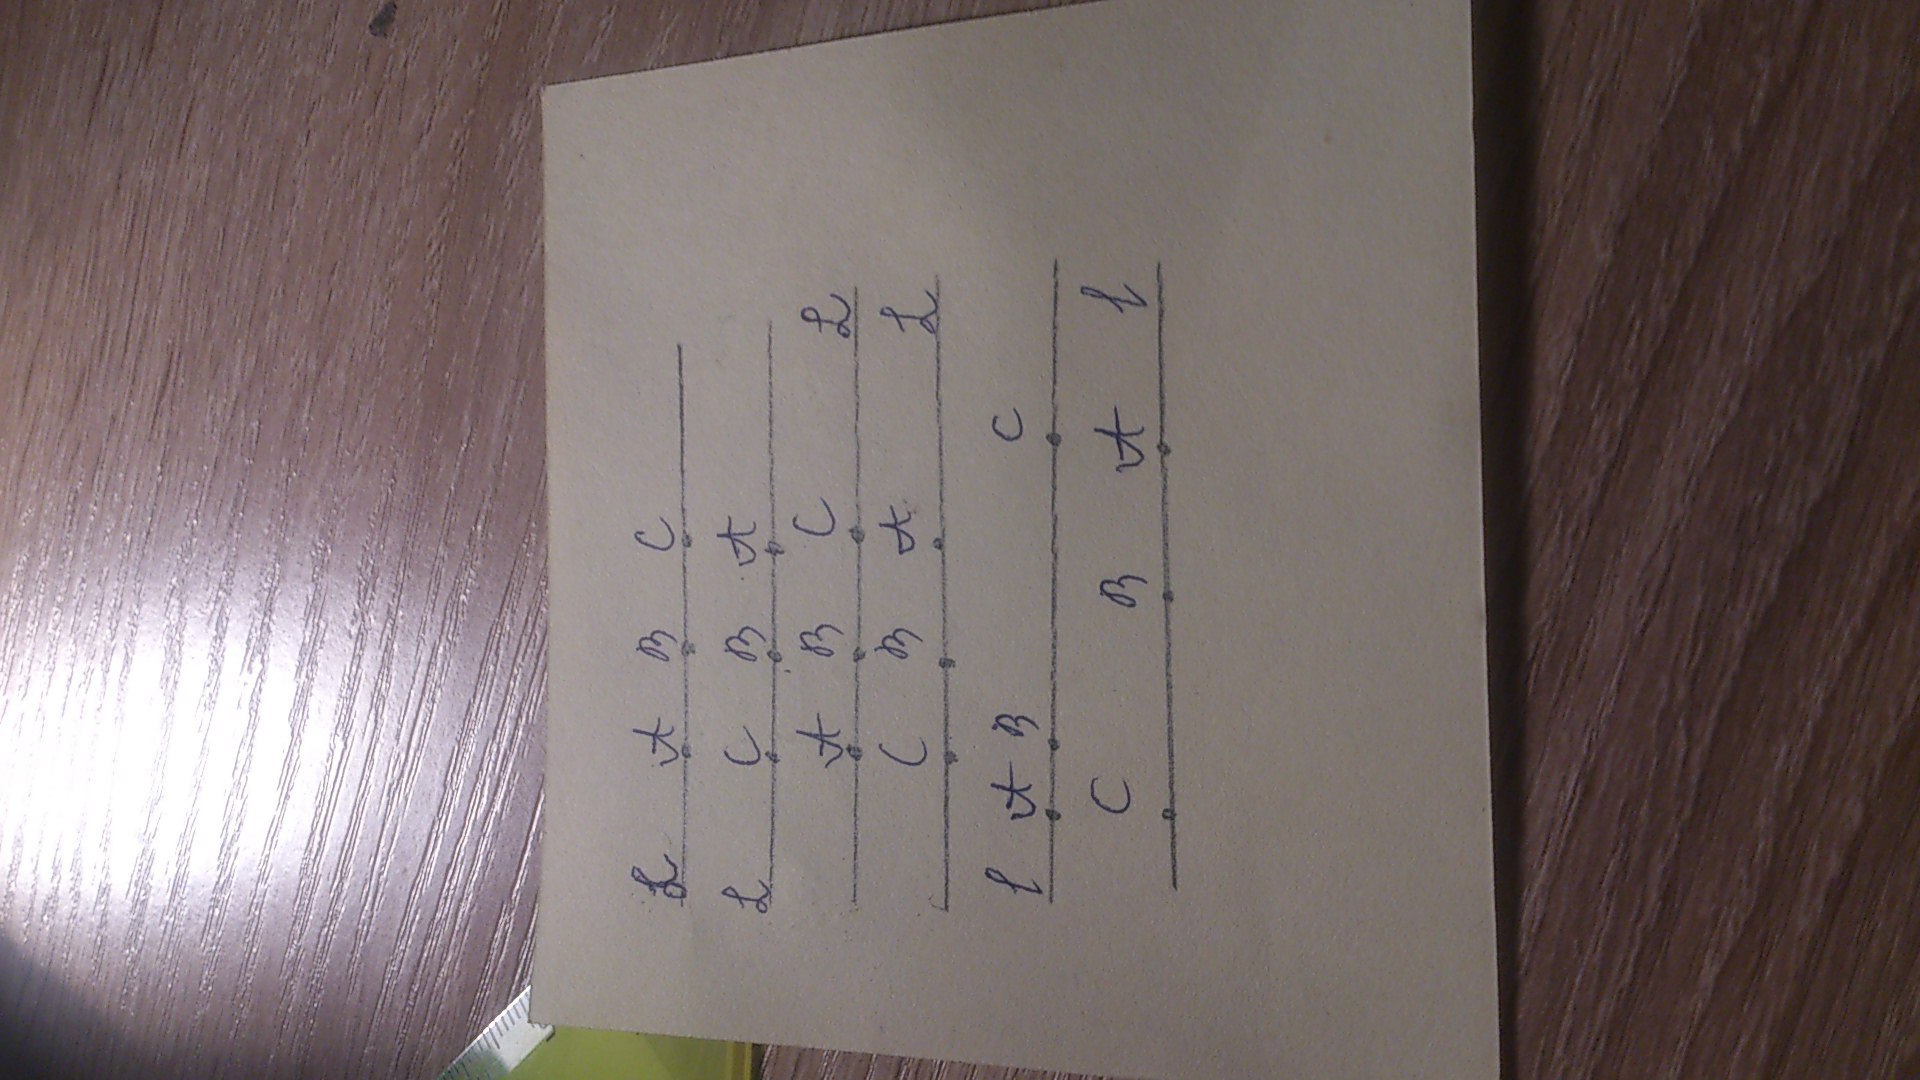 L A B C
L C B A
A B C L
C B A L
l A B C
C B A l